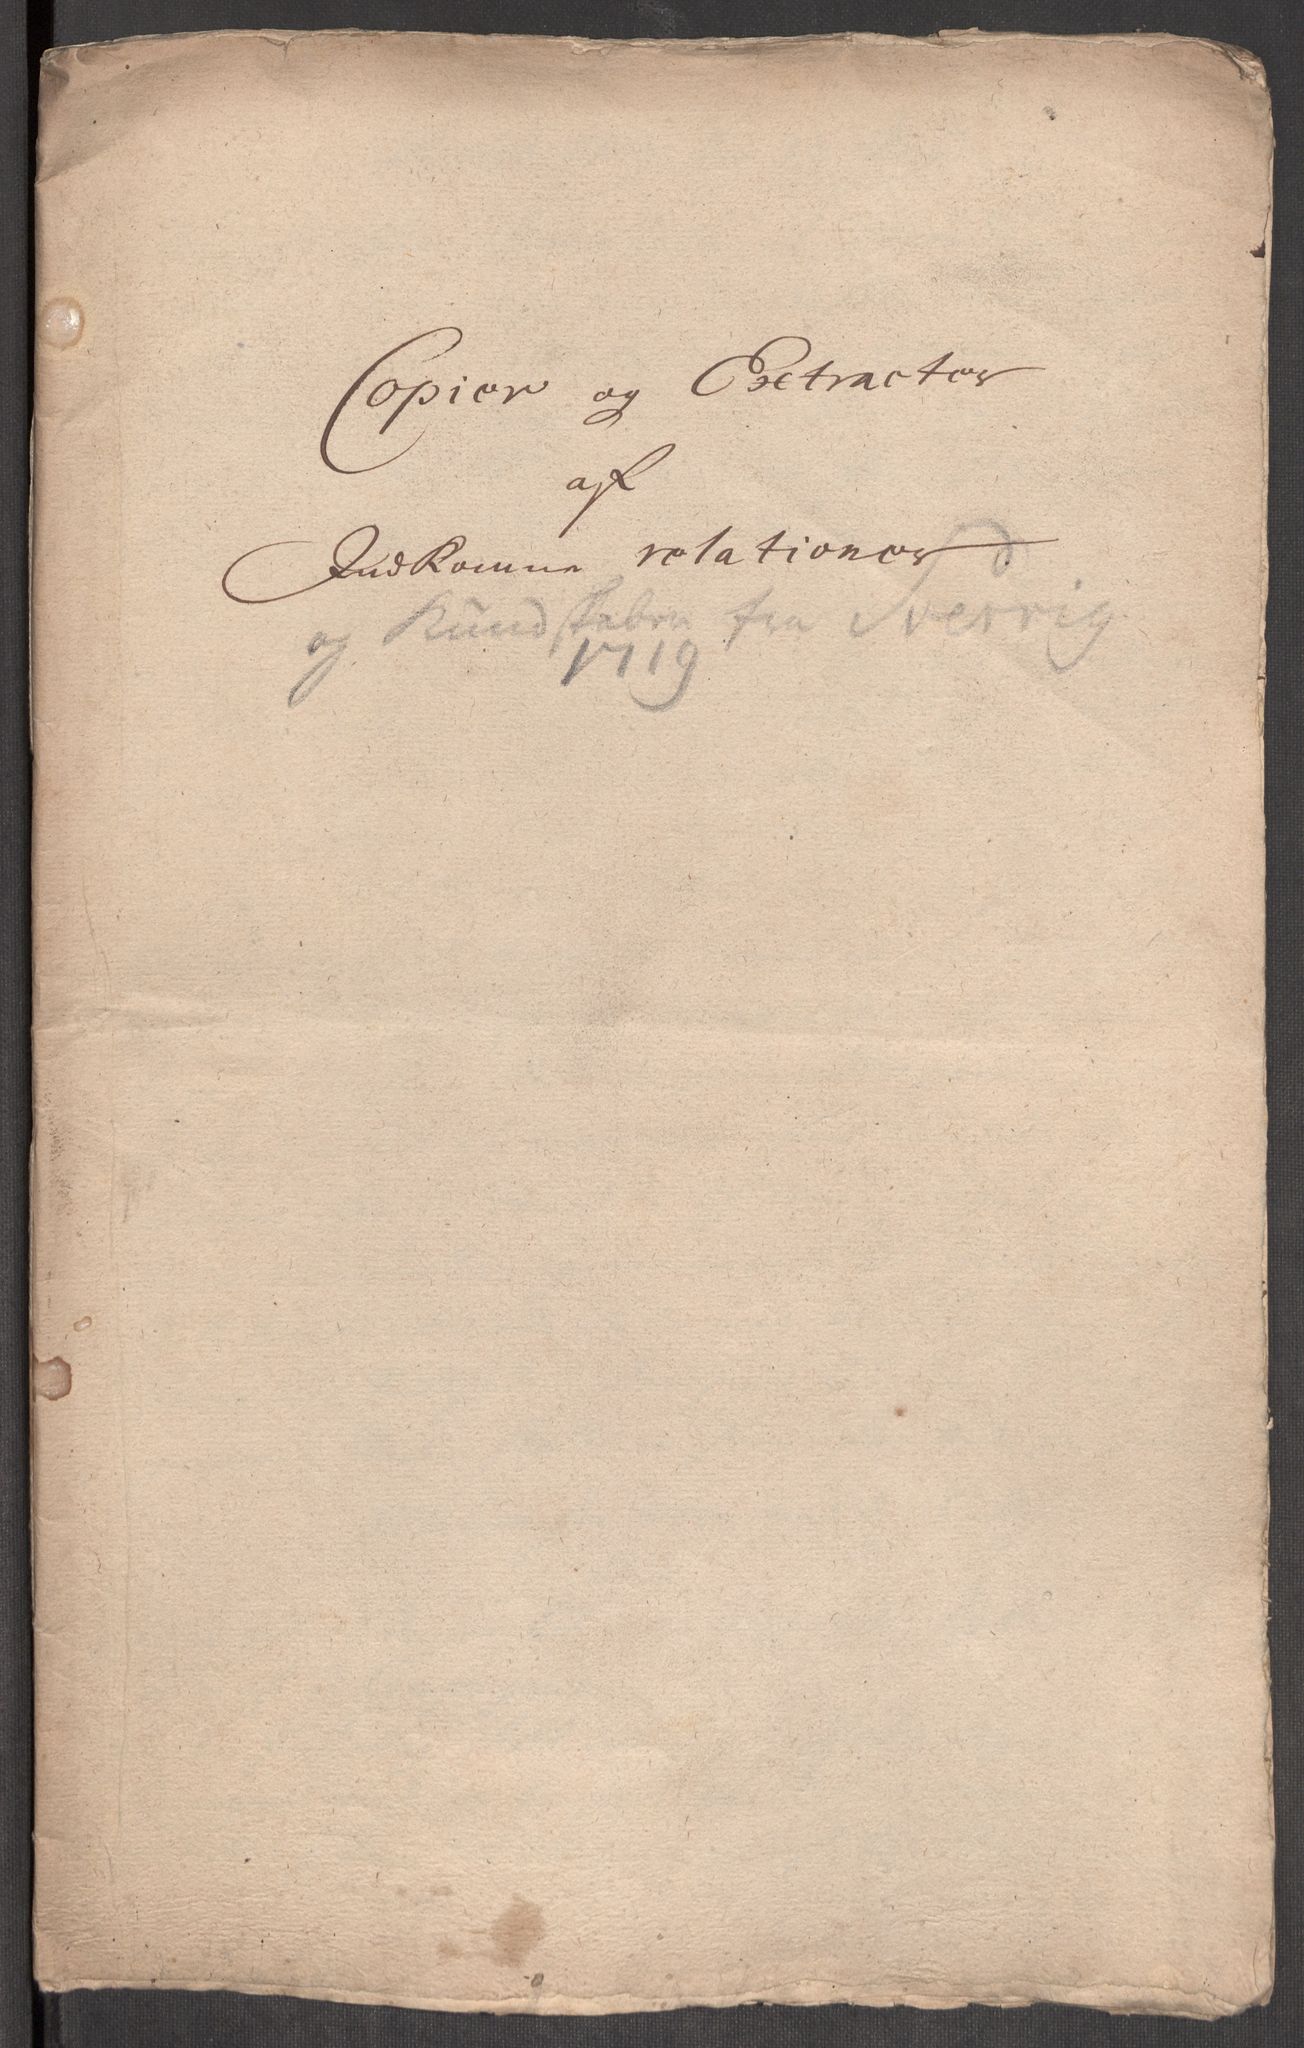 Copier og Extracter
af
Indkomne relationer
og Kundskaber fra Sverrig
1719